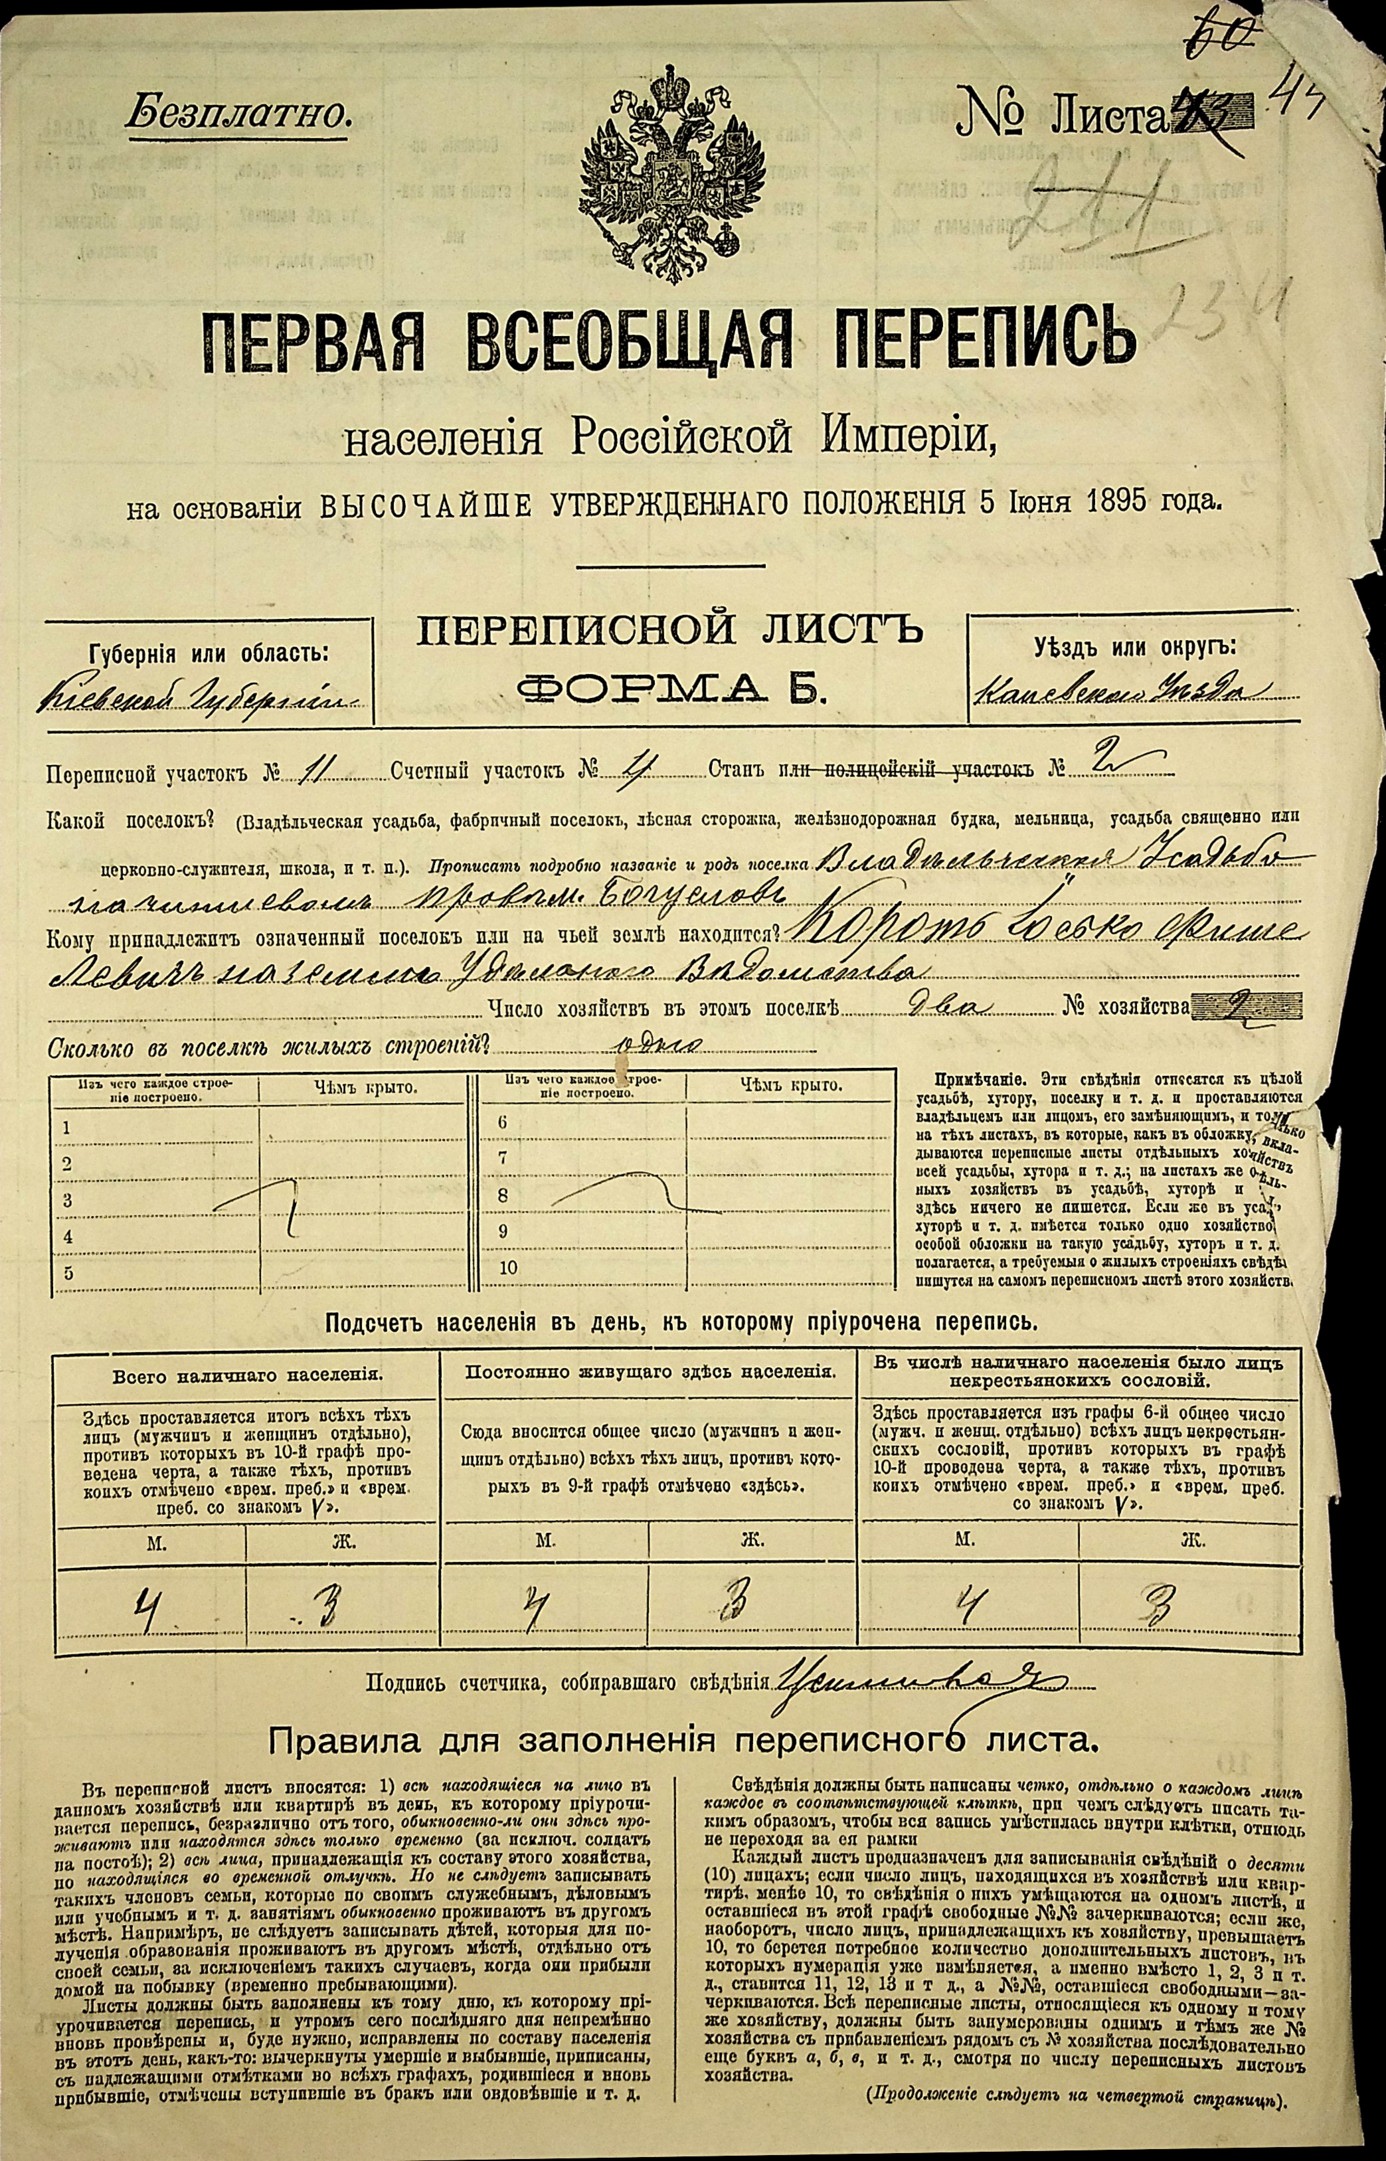 60
Безплатно.
№ Листа 43 44
211
234
ПЕРВАЯ ВСЕОБЩАЯ ПЕРЕПИСЬ
населенія Россійской Имперіи,
на основаніи ВЫСОЧАЙШЕ УТВЕРЖДЕННАГО ПОЛОЖЕНІЯ 5 Іюня 1895 года.
ПЕРЕПИСНОЙ ЛИСТЪ
ФОРМА Б.
Губернія или область:
Кіевской Губерніи
Уѣздъ или округъ:
Каневскаго Уѣзда
Переписной участокъ № 11 Счетный участокъ № 4 Станъ или полицейскій участокъ № 2
Какой поселокъ? (Владѣльческая усадьба, фабричный поселокъ, лѣсная сторожка, желѣзнодорожная будка, мельница, усадьба священно или
церковно-служителя, школа, и т. п.). Прописать подробно названіе и родъ поселка Владѣльческая Усадьба
на чиншевомъ правѣ м. Богуславъ
Кому принадлежитъ означенный поселокъ или на чьей землѣ находится? Коротъ Іосько Фише
Левичъ на земли Удѣльнаго Вѣдомства
Число хозяйствъ въ этомъ поселкѣ два № хозяйства 2
Сколько въ поселкѣ жилыхъ строеній? одно
Изъ чего каждое строе-
ніе построено.
Чѣмъ крыто.
Изъ чего каждое строе-
ніе построено.
Чѣмъ крыто.
1
2
3
4
5
6
7
8
9
10
Примѣчаніе. Эти свѣдѣнія относятся къ цѣлой
усадьбѣ, хутору, поселку и т. д. и проставляются
владѣльцемъ или лицомъ, его замѣняющимъ, и только
на тѣхъ листахъ, въ которые, какъ въ обложку, вкла-
дываются переписные листы отдѣльныхъ хозяйствъ
всей усадьбы, хутора и т. д.; на листахъ же отдѣль-
ныхъ хозяйствъ въ усадьбѣ, хуторѣ и
здѣсь ничего не пишется. Если же въ усад
хуторѣ и т. д. имѣется только одно хозяйство
особой обложки на такую усадьбу, хуторъ и т. д.
полагается, а требуемыя о жилыхъ строеніяхъ свѣдѣ
пишутся на самомъ переписномъ листѣ этого хозяйств
Подсчетъ населенія въ день, къ которому пріурочена перепись.
Всего наличнаго населенія.
Здѣсь проставляется итогъ всѣхъ тѣхъ
лицъ (мужчинъ и женщинъ отдѣльно),
противъ которыхъ въ 10-й графѣ про-
ведена черта, а также тѣхъ, противъ
коихъ отмѣчено «врем. преб.» и «врем.
преб. со знакомъ V».
Постоянно живущаго здѣсь населенія.
Сюда вносится общее число (мужчинъ и жен-
щинъ отдѣльно) всѣхъ тѣхъ лицъ, противъ кото-
рыхъ въ 9-й графѣ отмѣчено «здѣсь».
Въ числѣ наличнаго населенія было лицъ
некрестьянскихъ сословій.
Здѣсь проставляется изъ графы 6-й общее число
(мужч. и женщ. отдѣльно) всѣхъ лицъ некрестьян-
скихъ сословій, противъ которыхъ въ графѣ
10-й проведена черта, а также тѣхъ, противъ
коихъ отмѣчено «врем. преб.» и «врем. преб.
со знакомъ V».
М. Ж. М. Ж. М. Ж.
4 3 4 3 4 3
Подпись счетчика, собиравшаго свѣдѣнія
Правила для заполненія переписного листа.
Въ переписной листъ вносятся: 1) всѣ находящіеся на лицо въ
данномъ хозяйствѣ или квартирѣ въ день, къ которому пріурочи-
вается перепись, безразлично отъ того, обыкновенно-ли они здѣсь про-
живаютъ или находятся здѣсь только временно (за исключ. солдатъ
на постоѣ); 2) всѣ лица, принадлежащія къ составу этого хозяйства,
но находящіяся во временной отлучкѣ. Но не слѣдуетъ записывать
такихъ членовъ семьи, которые по своимъ служебнымъ, дѣловымъ
или учебнымъ и т. д. занятіямъ обыкновенно проживаютъ въ другомъ
мѣстѣ. Напримѣръ, не слѣдуетъ записывать дѣтей, которыя для по-
лученія образованія проживаютъ въ другомъ мѣстѣ, отдѣльно отъ
своей семьи, за исключеніемъ такихъ случаевъ, когда они прибыли
домой на побывку (временно пребывающими).
Листы должны быть заполнены къ тому дню, къ которому прі-
урочивается перепись, и утромъ сего послѣдняго дня непремѣнно
вновь провѣрены и, буде нужно, исправлены по составу населенія
въ этотъ день, какъ-то: вычеркнуты умершіе и выбывшіе, приписаны,
съ надлежащими отмѣтками во всѣхъ графахъ, родившіеся и вновь
прибывшіе, отмѣчены вступившіе въ бракъ или овдовѣвшіе и т. д.
Свѣдѣнія должны быть написаны четко, отдѣльно о каждомъ лицѣ
каждое въ соотвѣтствующей клѣткѣ, при чемъ слѣдуетъ писать та-
кимъ образомъ, чтобы вся запись умѣстилась внутри клѣтки, отнюдь
не переходя за ея рамки
Каждый листъ предназначенъ для записыванія свѣдѣній о десяти
(10) лицахъ; если число лицъ, находящихся въ хозяйствѣ или квар-
тирѣ, менѣе 10, то свѣдѣнія о нихъ умѣщаются на одномъ листѣ, и
оставшіеся въ этой графѣ свободные №№ зачеркиваются; если же,
наоборотъ, число лицъ, принадлежащихъ къ хозяйству, превышаетъ
10, то берется потребное количество дополнительныхъ листовъ, въ
которыхъ нумерація уже измѣняется, а именно вмѣсто 1, 2, 3 и т.
д., ставится 11, 12, 13 и т д., а №№, оставшіеся свободными—за-
черкиваются. Всѣ переписные листы, относящіеся къ одному и тому
же хозяйству, должны быть занумерованы однимъ и тѣмъ же №
хозяйства съ прибавленіемъ рядомъ съ № хозяйства послѣдовательно
еще буквъ а, б, в, и т. д., смотря по числу переписныхъ листовъ
хозяйства.
(Продолженіе слѣдуетъ на четвертой страницѣ).